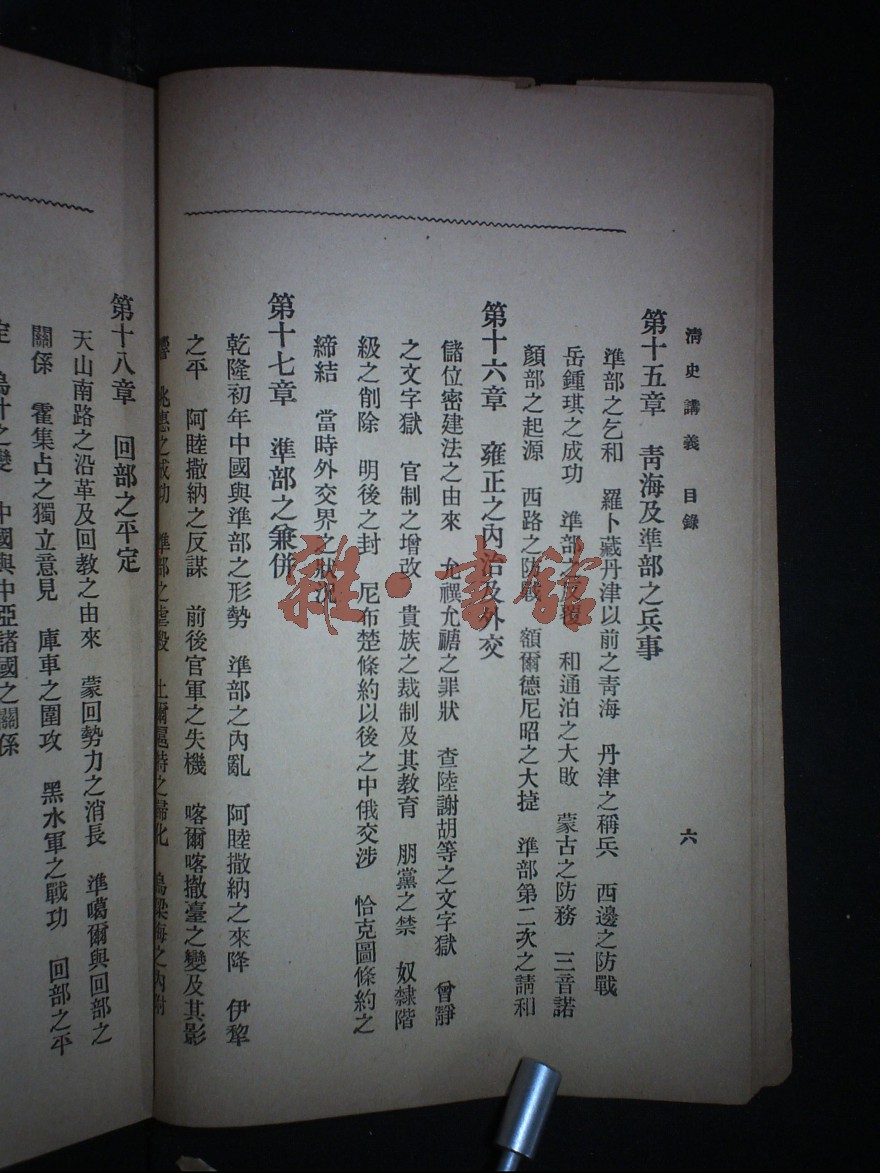 清史講義 目錄
六
第十五章 青海及準部之兵事
準部之乞和 羅卜藏丹津以前之青海 丹津之稱兵 西邊之防戰
岳鍾琪之成功 準部之反覆 和通泊之大敗 蒙古之防務 三音諾
顏部之起源 西路之防戰 額爾德尼昭之大捷 準部第二次之請和
第十六章 雍正之內治及外交
儲位密建法之由來 允禩允禟之罪狀 查陸謝胡等之文字獄 曾靜
之文字獄 官制之增改 貴族之裁制及其教育 朋黨之禁 奴隸階
級之削除 明後之封 尼布楚條約以後之中俄交涉 恰克圖條約之
締結 當時外交界之狀況
第十七章 準部之兼併
乾隆初年中國與準部之形勢 準部之內亂 阿睦撒納之來降 伊犂
之平 阿睦撒納之反謀 前後官軍之失機 喀爾喀撤臺之變及其影
響 兆惠之成功 準部之虐殺 土爾扈特之歸化 烏梁海之內附
第十八章 回部之平定
天山南路之沿革及回教之由來 蒙回勢力之消長 準噶爾與回部之
關係 霍集占之獨立意見 庫車之圍攻 黑水軍之戰功 回部之平
定 烏什之變 中國與中亞諸國之關係
雜·書館